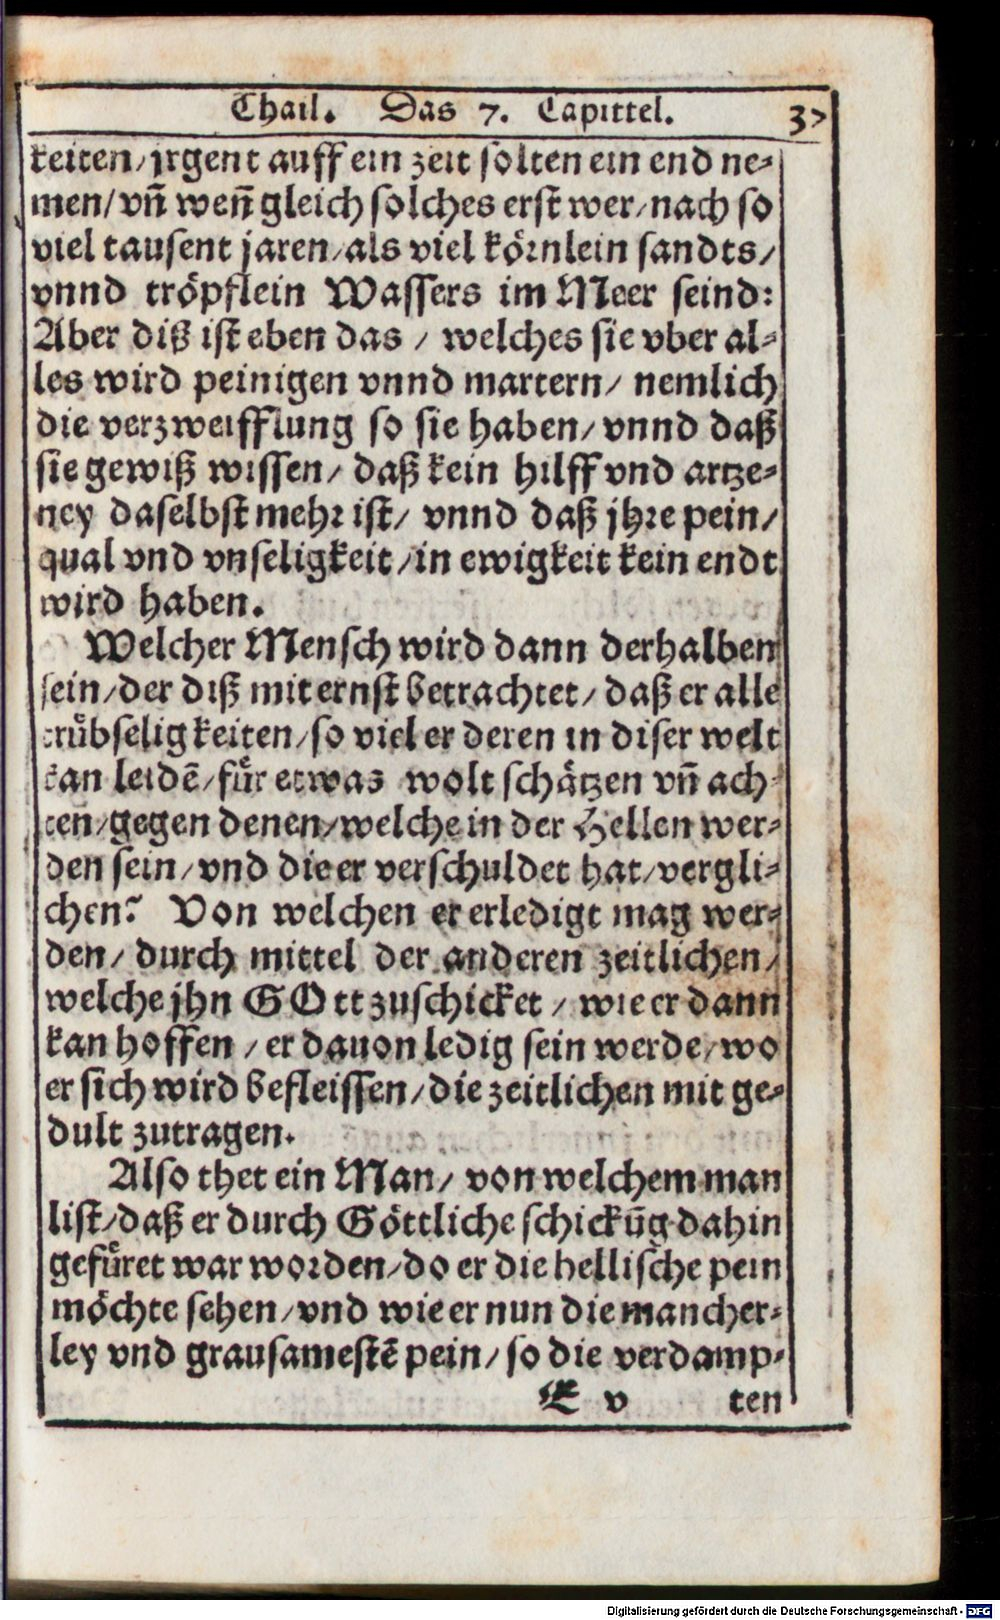 Thail. Das 7. Capittel. 37
keiten/ jrgent auff ein zeit solten ein end ne-
men/ vñ weñ gleich solches erst wer/ nach so
viel tausent jaren/ als viel körnlein sandts/
vnnd tröpflein Wassers im Meer seind:
Aber diß ist eben das / welches sie vber al-
les wird peinigen vnnd martern/ nemlich
die verzweifflung so sie haben/ vnnd daß
sie gewiß wissen/ daß kein hilff vnd artze-
ney daselbst mehr ist/ vnnd daß jhre pein/
qual vnd vnseligkeit/ in ewigkeit kein endt
wird haben.
Welcher Mensch wird dann derhalben
sein/ der diß mit ernst betrachtet/ daß er alle
trübseligkeiten/ so viel er deren in diser welt
kan leidē/ für etwas wolt schätzen vñ ach-
ten/ gegen denen/ welche in der Hellen wer-
den sein/ vnd die er verschuldet hat/ vergli-
chen? Von welchen er erledigt mag wer-
den/ durch mittel der anderen zeitlichen/
welche jhn GOtt zuschicket / wie er dann
kan hoffen / er dauon ledig sein werde/ wo
er sich wird befleissen/ die zeitlichen mit ge-
dult zutragen.
Also thet ein Man/ von welchem man
list/ daß er durch Göttliche schickūg dahin
gefüret war worden/ do er die hellische pein
möchte sehen/ vnd wie er nun die mancher-
ley vnd grausamestē pein/ so die verdamp-
E v ten
Digitalisierung gefördert durch die Deutsche Forschungsgemeinschaft - DFG